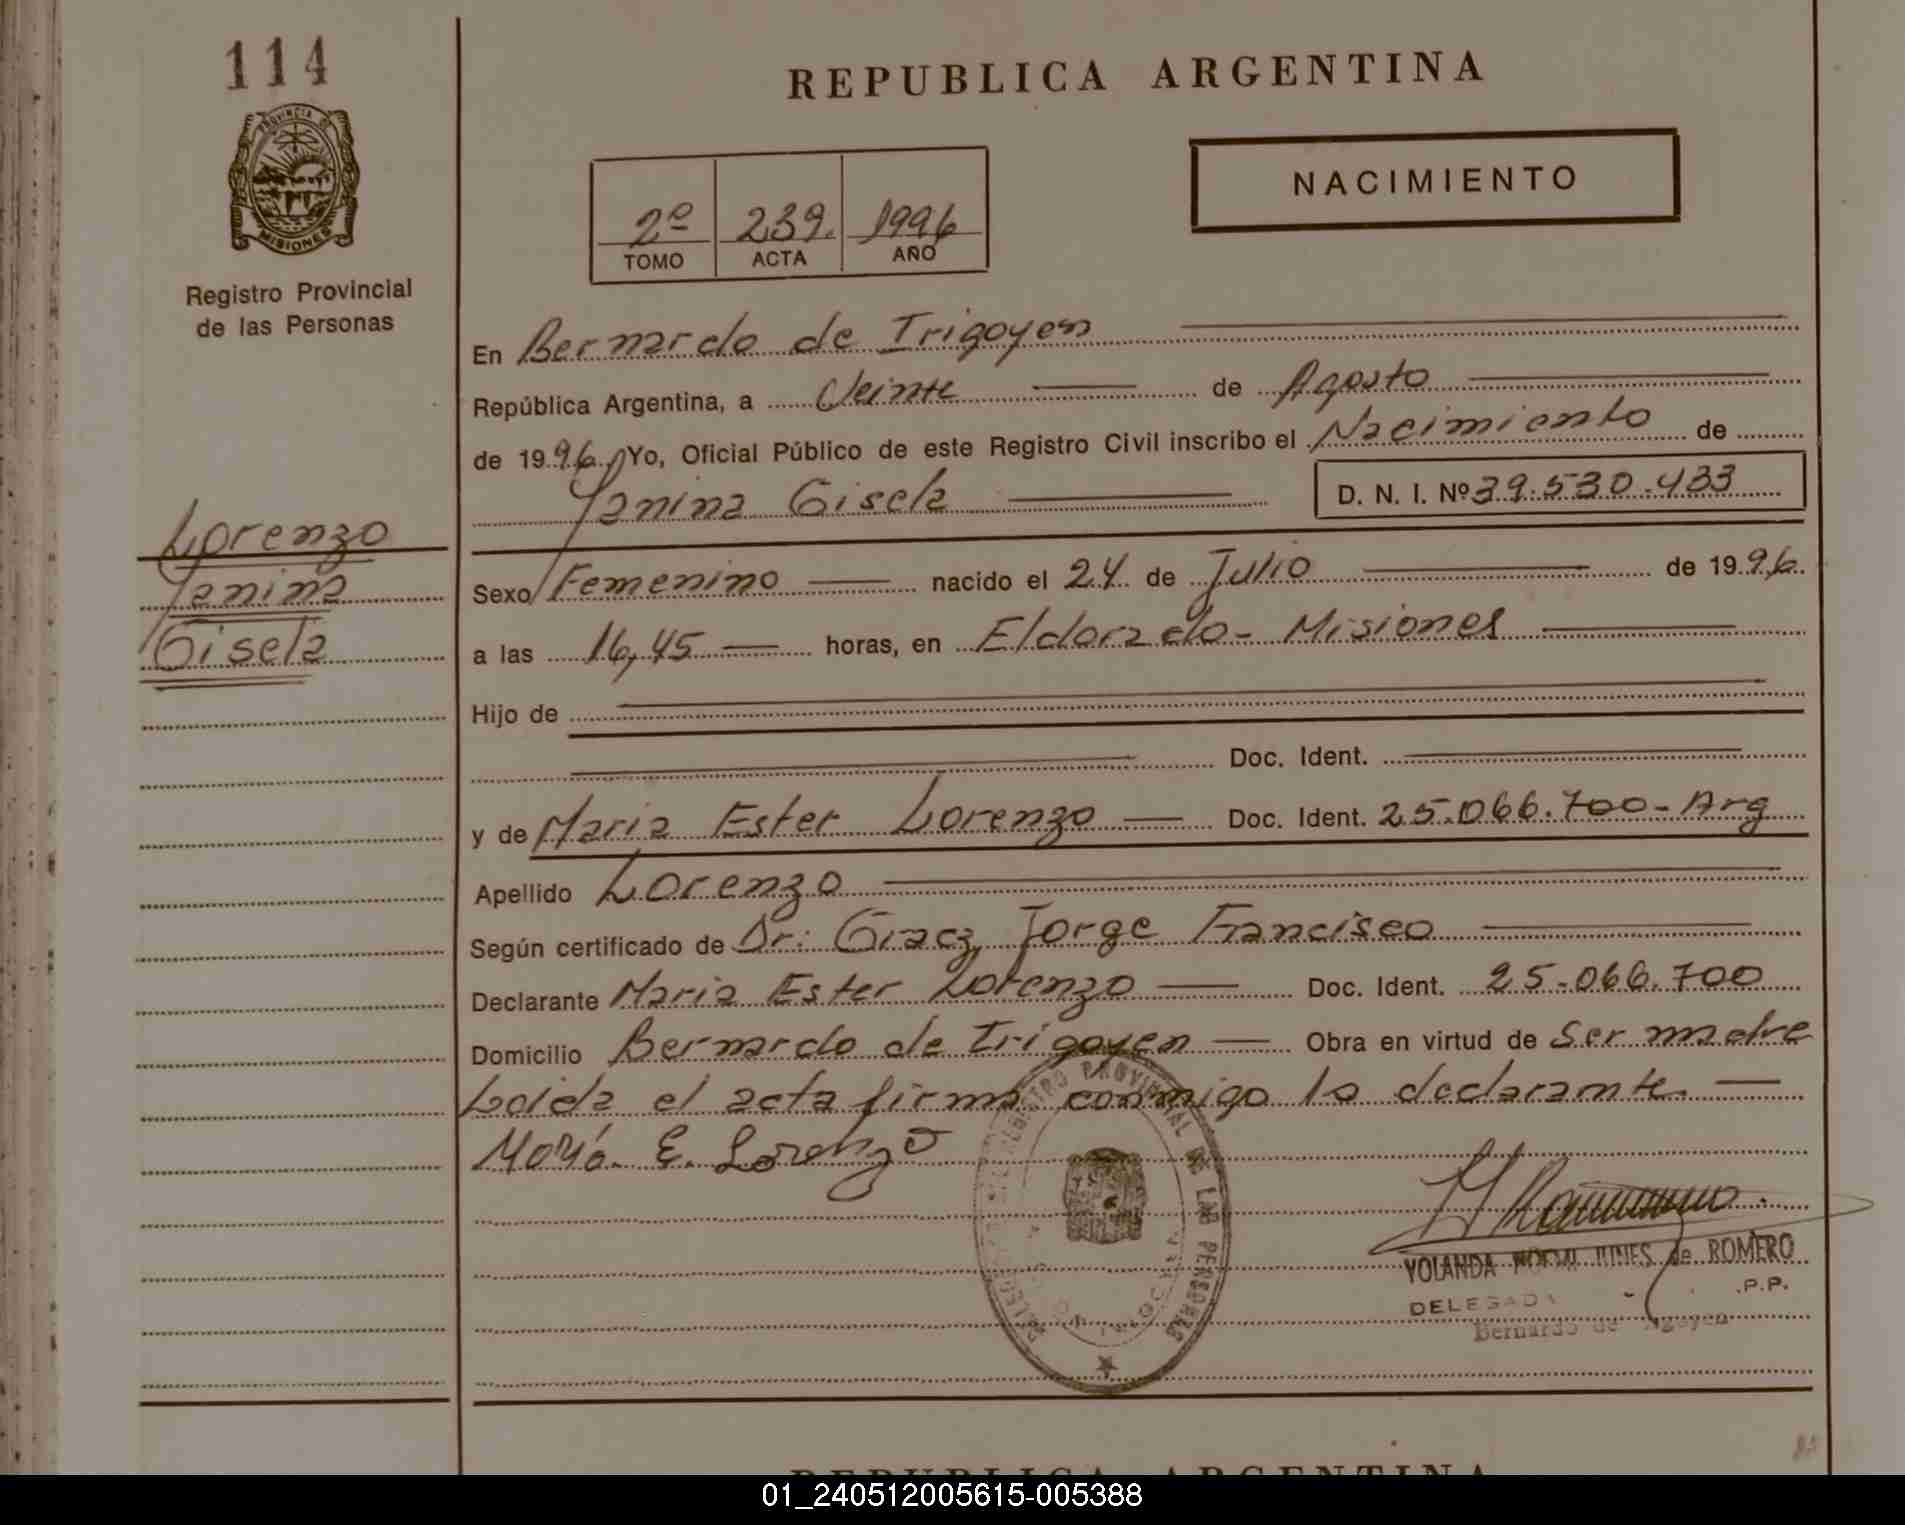 114
PROVINCIA DE
MISIONES
Registro Provincial
de las Personas
Lorenzo
Yanina
Gisela
REPUBLICA ARGENTINA
NACIMIENTO
2º 239. 1996
TOMO ACTA AÑO
En Bernardo de Irigoyen
República Argentina, a Veinte de Agosto
de 1996 Yo, Oficial Público de este Registro Civil inscribo el Nacimiento de
Yanina Gisela D. N. I. Nº 39.530.433
Sexo Femenino nacido el 24 de Julio de 1996.
a las 16,45 horas, en Eldorado - Misiones
Hijo de
Doc. Ident.
y de Maria Ester Lorenzo Doc. Ident. 25.066.700 - Arg
Apellido Lorenzo
Según certificado de Dr: Giacz, Jorge Francisco
Declarante Maria Ester Lorenzo Doc. Ident. 25.066.700
Domicilio Bernardo de Irigoyen Obra en virtud de Ser madre
Leida el acta firma conmigo la declarante.
María. E. Lorenzo
REGISTRO PROVINCIAL DE LAS PERSONAS
YOLANDA NOEMI de ROMERO
DELEGADA .P.P.
Bernardo de
REPUBLICA ARGENTINA
01_240512005615-005388